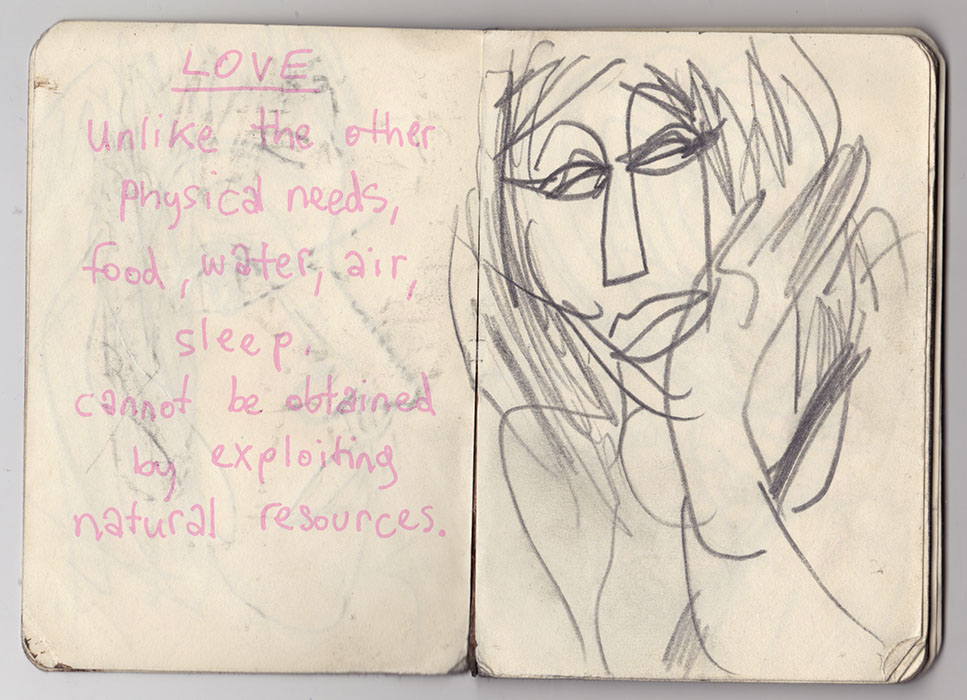 LOVE
Unlike the other
physical needs,
food, water, air,
sleep.
cannot be obtained
by exploiting
natural resources.